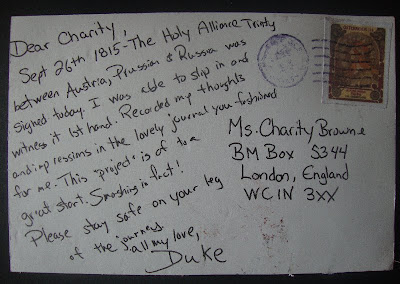 Dear Charity,
Sept 26th 1815 - The Holy Alliance Treaty
between Austria, Prussia & Russia was
signed today. I was able to slip in and
witness it 1st hand. Recorded my thoughts
and impressions in the lovely journal you fashioned
for me. This "project" is of to a
great start. Smashing in fact!
Please stay safe on your leg
of the journey.
all my love,
Duke
Ms. Charity Browne
BM Box 5344
London, England
WC1N 3XX